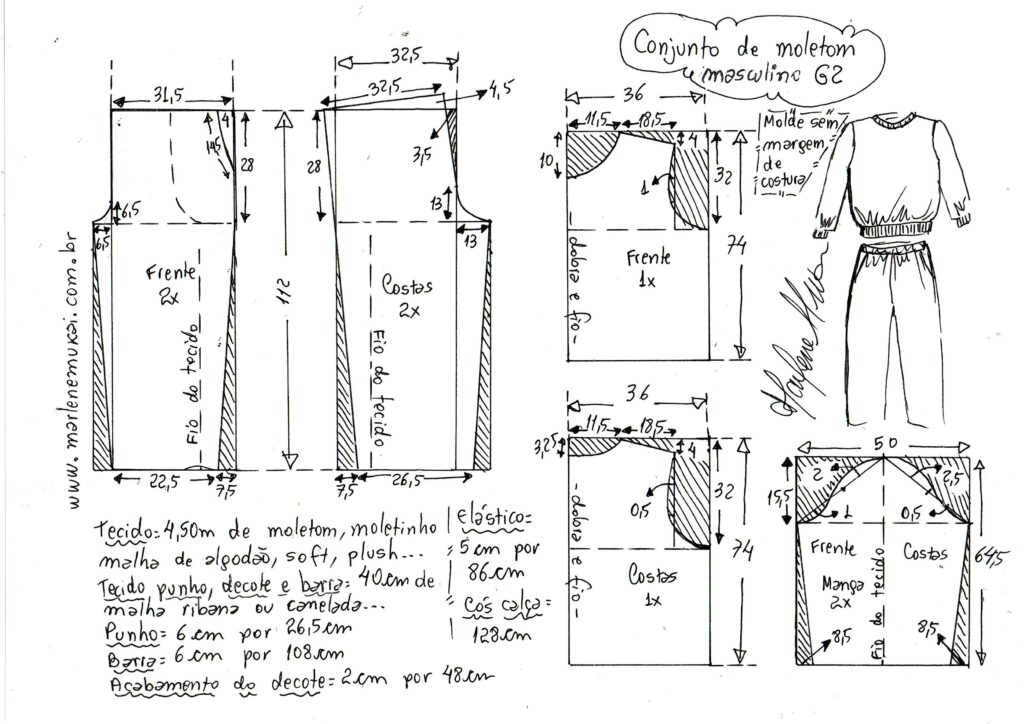 Conjunto de moletom
masculino G2
Molde sem
margem
de
costura
www.marlenemukai.com.br
31,5
4
14,5
28
6,5
6,5
Frente
2x
Fio do tecido
22,5
7,5
112
32,5
32,5
4,5
3,5
28
13
13
Costas
2x
Fio do tecido
7,5
26,5
36
11,5
18,5
10
4
1
32
74
Frente
1x
-dobra e fio-
36
11,5
18,5
3,25
4
0,5
32
74
Costas
1x
-dobra e fio-
50
2
2,5
15,5
1
0,5
Frente
Costas
Manga
2x
Fio do tecido
64,5
8,5
8,5
Tecido= 4,50m de moletom, moletinho
malha de algodão, soft, plush...
Tecido punho, decote e barra= 40cm de
malha ribana ou canelada...
Punho= 6cm por 26,5cm
Barra= 6cm por 108cm
Acabamento do decote= 2cm por 48cm
Elástico=
= 5cm por
86cm
= Cós calça=
128cm
Marlene Mukai